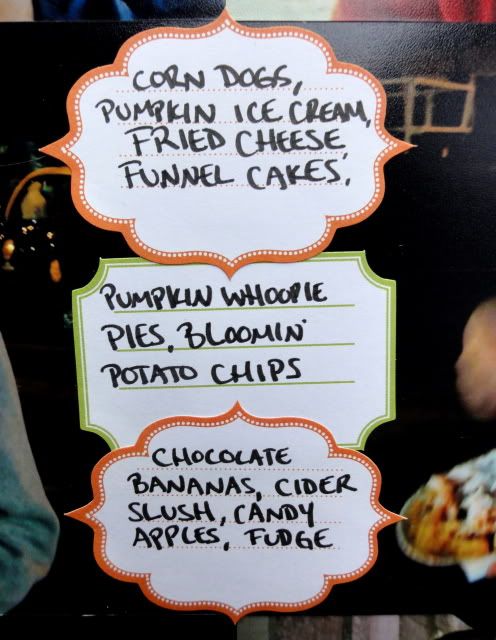 CORN DOGS,
PUMPKIN ICE CREAM,
FRIED CHEESE,
FUNNEL CAKES,
PUMPKIN WHOOPIE
PIES, BLOOMIN'
POTATO CHIPS
CHOCOLATE
BANANAS, CIDER
SLUSH, CANDY
APPLES, FUDGE